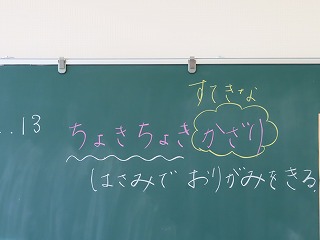 すてきな
..13
ちょきちょきかざり
はさみで おりがみをきる.